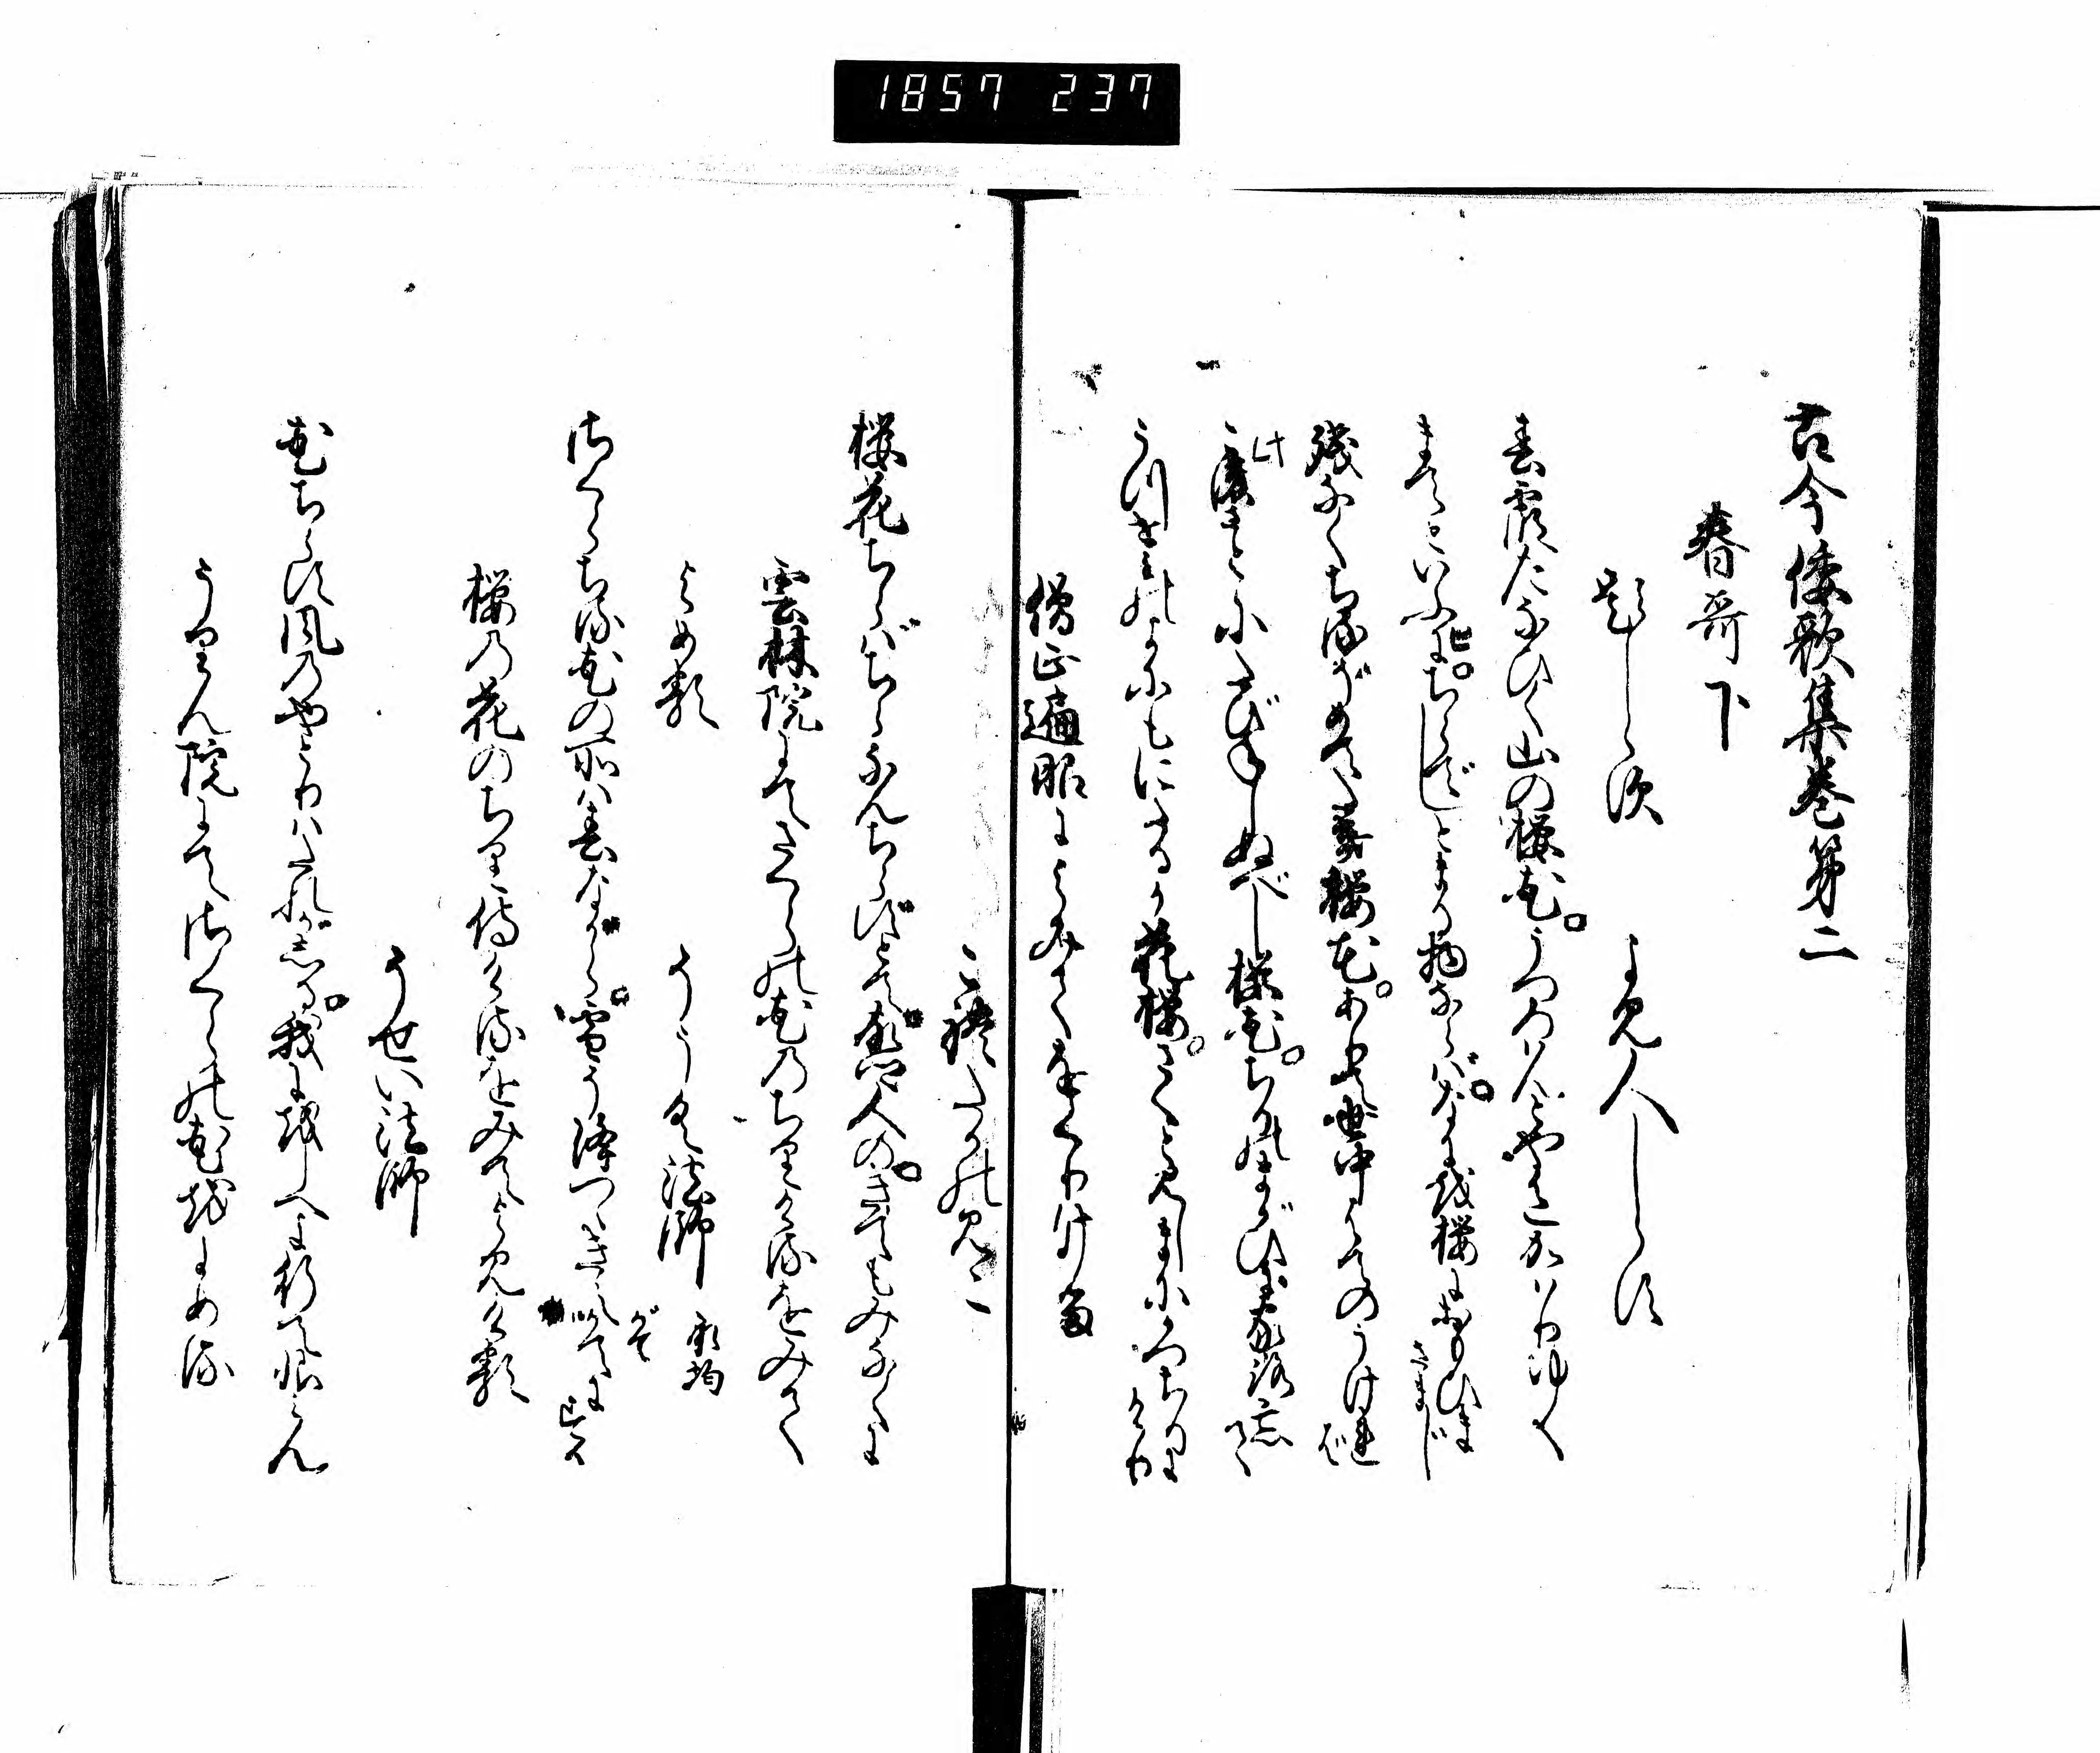 1857 237
古今倭歌集巻第二
春哥下
題しらす
よみ人しらす
春霞たなひく山の桜花うつろはんとや色かはりゆく
まてといふにちらでしとまる物ならばなにを桜におもひまさまし
残なくちるぞめてたき桜花あり世中はてのうけれは
此さとにたびねしぬべし桜花ちりのまがひに家路忘て
うつせみの世にもにたるか花桜さくと見しまにかつちりにけり
僧正遍昭によみておくりける
これたかのみこ
桜花ちらばちらなんちらずとて古郷人のきてもみなくに
雲林院にてさくらの花のちりけるをみて
よめる
そうく法師 承均
さくらちる花の所は春ながら雪そ降つゝきえがてにする
桜の花のちり侍けるをみてよみける
そせい法師
花ちらす風のやとりはたれかしる我にをしへよ行て恨みん
うりん院にてさくらの花をよめる